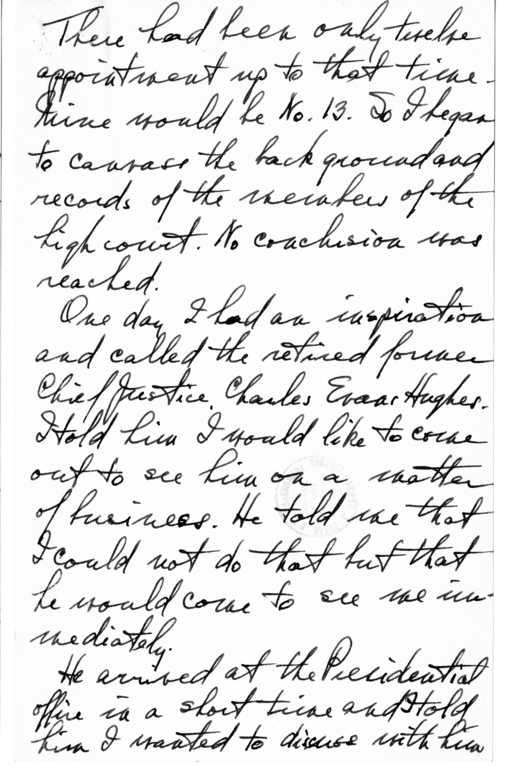 There had been only twelve
appointment up to that time.
Mine would be No. 13. So I began
to canvass the back ground and
records of the members of the
high court. No conclusion was
reached.
One day I had an inspiration
and called the retired former
Chief Justice, Charles Evans Hughes.
I told him I would like to come
out to see him on a matter
of business. He told me that
I could not do that but that
he would come to see me im-
mediately.
He arrived at the Presidential
office in a short time and I told
him I wanted to discuss with him